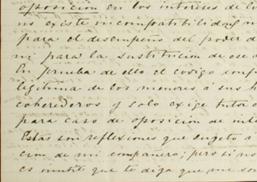 oposicion en los intereses de lo
no existe incompatibilidad
para el desempeño del poder d
ni para la sustitucion de ese
En prueba de ello el codigo conf
legitima de los menores á sus h
coherederos y solo exige tutor
para caso de oposicion de inte
Estas son reflexiones que sugeto á
de mi compañero; pero si no
es inutil que te diga que me som